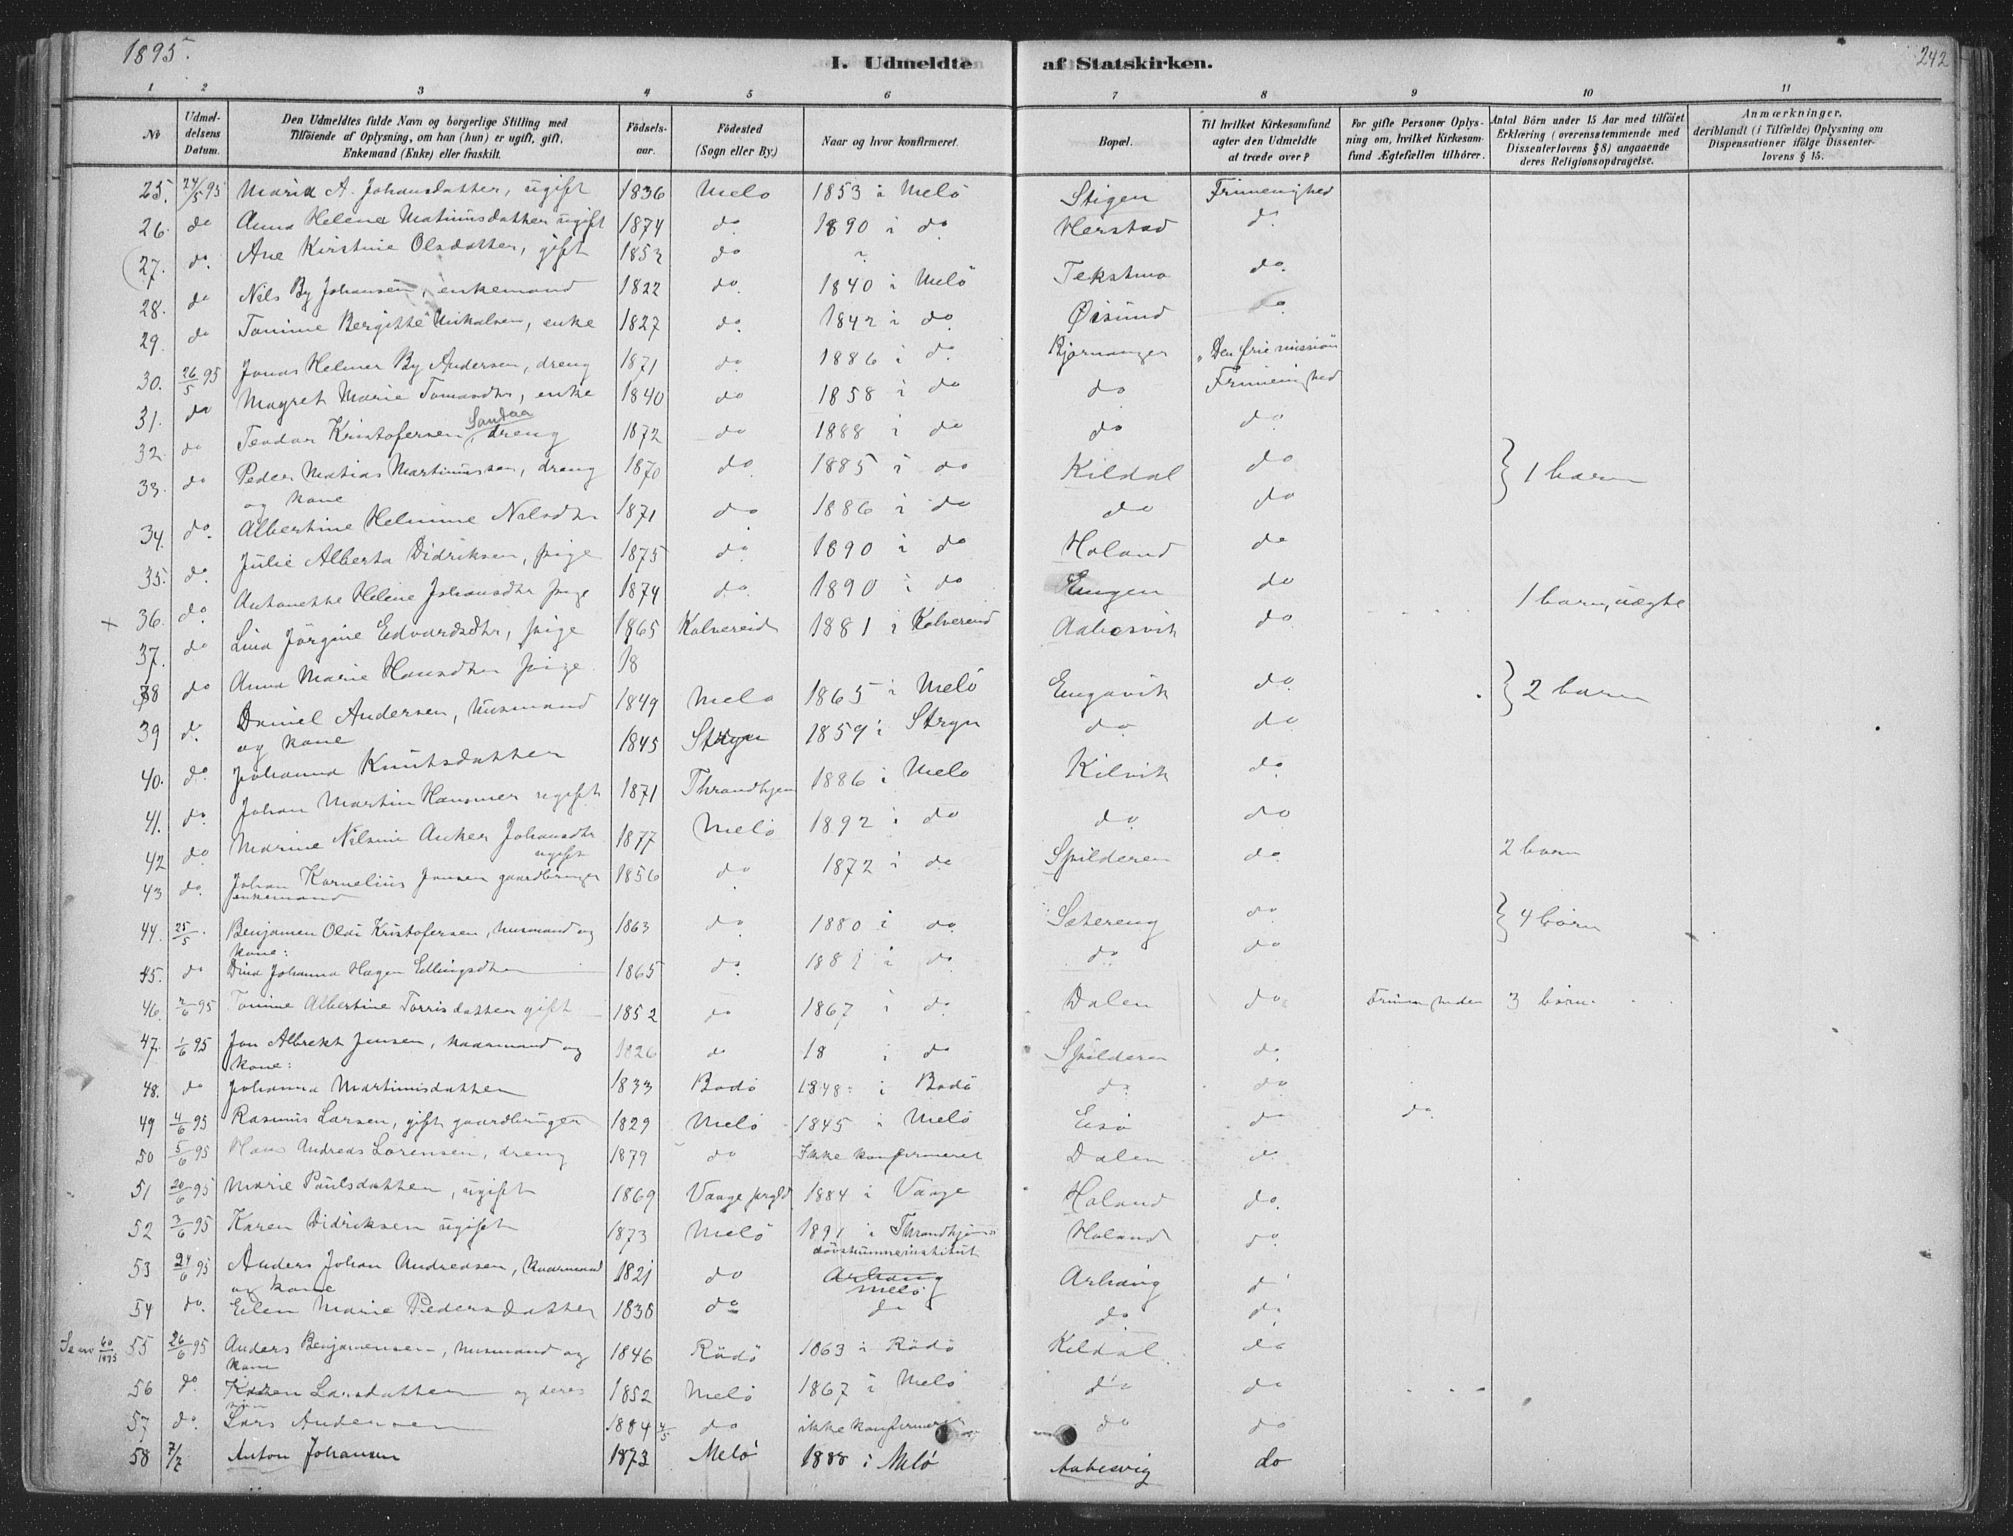 1895.
I. Udmeldte af Statskirken.
242
1 2 3 4 5 6 7 8 9 10 11
No
Udmeldelsens Datum.
Den Udmeldtes fulde Navn og borgerlige Stilling med Tilföiende af Oplysning, om han (hun) er ugift, gift, Enkemand (Enke) eller fraskilt.
Födselsaar.
Födested (Sogn eller By.)
Naar og hvor konfirmeret.
Bopæl.
Til hvilket Kirkesamfund agter den Udmeldte at træde over?
For gifte Personer Oplysning om, hvilket Kirkesamfund Ægtefællen tilhörer.
Antal Börn under 15 Aar med tilföiet Erklæring (overensstemmende med Dissenterlovens § 8) angaaende deres Religionsopdragelse.
Anmærkninger, deriblandt (i Tilfælde) Oplysning om Dispensationer ifölge Dissenterlovens § 15.
25. 24/5 95 Maria A. Johansdatter, ugift 1836 Melö 1853 i Melö Stigen Frimenighed
26. do Anna Helena Matiusdatter ugift 1874 do. 1890 i do Herstad do
27. do. Ane Kirstine Olsdatter, gift 1853 do Tekstmo do.
28. do Nils By Johansen, enkemand 1822 do. 1840 i Melö Öisund do
29. do Tomine Bergitte Mikalsen, enke 1827 do. 1842 i do Bjørnanger "Den frie mission
30. 26/5 95 Jonas Helmer By Andersen, dreng 1871 do. 1886 i do. do Frimenighed
31. do Magret Marie Tomasdtr, enke 1840 do 1858 i do do do
32. do Teodor Kristofersen Sandaa dreng 1872 do 1888 i do
33. do Peder Matias Martinussen, dreng 1870 do. 1885 i do Kildal do } 1 barn
og kone
34. do. Albertine Helmine Nilsdtr 1871 do 1886 i do do do
35. do. Julie Alberta Didriksen, pige 1875 do. 1890 i do Haland do
36. do. Antonette Helene Johansdtr pige 1874 do. 1890 i do Engen do 1 barn, uægte
37. do Lina Jörgine Edvardsdtr, pige 1865 Kolvereid 1881 i Kolvereid Aabesvik do
38 do Anna Marie Hansdtr pige 18
39 do. Daniel Andersen, husmand 1849 Melö 1865 i Melö Engavik do } 2 barn
og kone
40. do. Johanna Knutsdatter 1845 Stryn 1859 i Stryn do. do
41. do. Johan Martin Hammer ugift 1871 Throndhjem 1886 i Melö Kilvik do
42 do. Marine Nilsine Anker Johansdtr ugift 1877 Melö 1892 i do do. do
43 do. Johan Kornelius Jensen gaardbruger enkemand 1856 do 1872 i do Spilderen do. 2 barn
44. 25/5. Benjamen Olai Kristofersen, husmand og kone: 1863 do 1880 i do Setereng do } 4 börn
45. do Dina Johanna Hagen Ellingsdtr 1865 do. i do do do
46. 2/6 95 Tomine Albertine Torrisdatter gift 1852 do 1867 i do. Dalen do 3 börn.
47. 1/6 95 Jon Albrekt Jensen, kaarmand og kone: 1826 do 18 i do Spilderen do.
48. do Johanna Martinusdatter 1833 Bodö 1848 i Bodö do. do
49 4/6 95 Rasmus Larsen, gift gaardbruger 1829 Melö 1845 i Melö do do.
50 5/6 95 Hans Andreas Lorensen, dreng 1879 do Ikke konfirmeret Dalen do
51 20/6 95 Marie Paulsdatter, ugift 1869 Vaage prgld 1884 i Vaage Haland do.
52 3/6 95 Karen Didriksen ugift 1873 Melö 1891 i Throndhjems dövstummeinstitut Haland do.
53 24/6 95 Anders Johan Andreasen, kaarmand og kone 1821 do Arhaug Melö Arhaug do
54 do. Elen Marie Pedersdatter 1838 do do do. do.
Se no 60/1895 55 26/6 95 Anders Benjamensen, husmand og kone 1846 Rödö 1863 i Rödö Kildal do
56 do. Karen Larsdatter og deres sön 1852 Melö 1867 i Melö do do
57 do. Lars Andersen 1884 4/5 do ikke konfirmeret do do
58 7/7 Anton Johansen 1873 Melö 1888 i Melö Aabesvig do